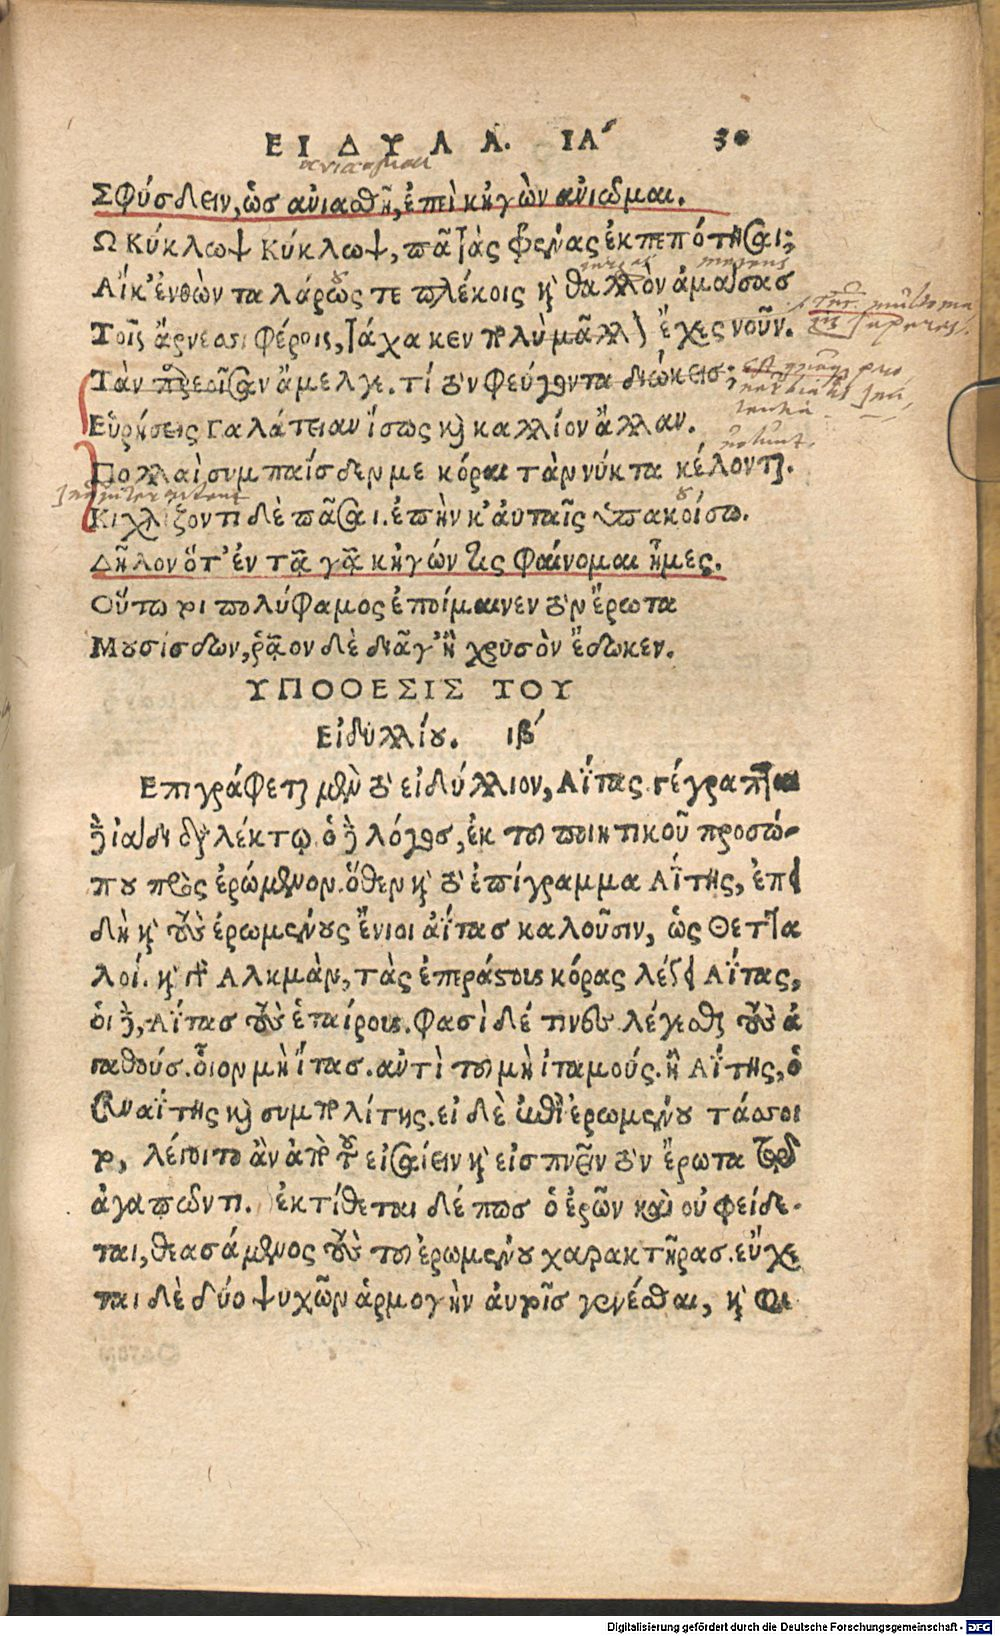 ΕΙΔΥΛΛ. ΙΑ΄ 30
Σφύσδειν, ὡσ ἀνιαθῆ, ἐπεὶ κἠγὼν ἀνιῶμαι.
Ω Κύκλωψ Κύκλωψ, πᾶ τὰς φρένας ἐκπεπότησαι;
Αἴκ' ἐνθὼν ταλάρως τε πλέκοις καὶ θαλλὸν ἀμάσασ
Τοῖς ἄρνεσσι φέροις, τάχα κεν πολὺ μᾶλλον ἔχες νοῦν.
Τὰν παρεοῖσαν ἄμελγε. τί τὸν φεύγοντα διώκεισ;
Εὑρήσεις Γαλάτειαν ἴσως καὶ καλλίον' ἄλλαν.
Πολλαὶ συμπαίσδεν με κόραι τὰν νύκτα κέλονται.
Κιχλίζοντι δὲ πᾶσαι. ἐπὴν κ' αὐταῖς ὑπακούσω.
Δῆλον ὅτ' ἐν τᾷ γᾷ κἠγών τις φαίνομαι ἦμες.
Οὕτω τοι πολύφαμος ἐποίμαινεν τὸν ἔρωτα
Μουσίσδων, ῥᾷον δὲ διᾶγ' ἢ χρυσὸν ἔδωκεν.
ΥΠΟΘΕΣΙΣ ΤΟΥ
Εἰδυλλίου. ιβ΄
Επιγράφεται μὲν τὸ εἰδύλλιον, Αΐτας. γέγραπται
δὲ ἰάδι διαλέκτῳ ὁ δὲ λόγοσ, ἐκ τοῦ ποιητικοῦ προσώ-
που πρὸς ἐρώμενον. ὅθεν καὶ τὸ ἐπίγραμμα Αΐτης, ἐπει
δὴ καὶ τοὺς ἐρωμένους ἔνιοι ἀΐτασ καλοῦσιν, ὡς Θεττα
λοί. καὶ Αλκμὰν, τὰς ἐπεράστους κόρας λέγει Αΐτας,
οἱ δὲ, Αΐτασ τοὺς ἑταίρους. Φασὶ δέ τινες λέγεσθαι τοὺς ἀ
παθούς. οἷον μὴ ἴτασ. ἀντὶ τοῦ μὴ ἰταμούς. ἢ Αΐτης, ὁ
συναΐτης καὶ συμπολίτης. εἰ δὲ ἐπὶ ἐρωμένου τάσσοι
το, λέγοιτο ἂν ἀπὸ τοῦ εἰσαίειν καὶ εἰσπνεῖν τὸν ἔρωτα τῷ
ἀγαπῶντι. ἐκτίθεται δέ πωσ ὁ ἐρῶν καὶ οὐ φείδε-
ται, θεασάμενος τοὺς τοῦ ἐρωμένου χαρακτῆρασ. εὔχε
ται δὲ δύο ψυχῶν ἁρμογὴν αὐτοῖσ γενέσθαι, καὶ
Digitalisierung gefördert durch die Deutsche Forschungsgemeinschaft - DFG